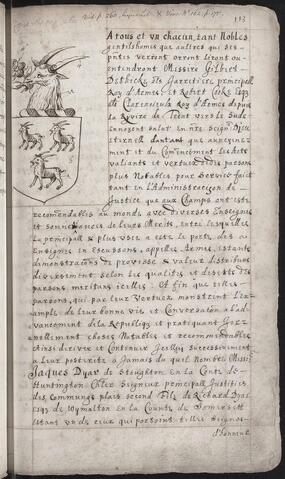 113
A tous et un chacun, tant Nobles
gentilshomes que aultres qui ses
pntes verront orront liront ou
entendront Missire Gilbert
Dethicke, ils Garretiere principall
Roy d'Armes, et Robert Cooke Esqr
Clarencieulx Roy d'Armes depuis
la Rivire de Trent vers le Sud
Salut en nre Seigr Dieu
eternell d'autant que
ment et du Commencement les
valiants et vertueux personnes
plus Notables pour Service faict
tant en l'Administracion de
Justice que aux Champs ont esté
recomendables au monde avec diverses Enseignes
et de leurs Merits, entre lesquelles
la principall & plus usee a este le port de
Enseigne en Escussons, appelles Armes, estants
demonstracons de provesse & valeur distribues
diversement selon les qualites et
persons meritans icelles: A fin que telles
persons, qui par leur Vertues monstrent l'ex-
ample de leur bonne vie et Conversation à l'ad-
vancement de la Republiq et pratiquant Jour-
nellement choses Notables et recommendables
et Continuer Icelles successivement
a leur posterite a Jamais du quil Nombre Missre
Jaques Dyar de Stoughton en la Conte de
Huntington Chlier Seigneur principall Justicier
des Communes plais second Fils de Richard Dyar
Esqr de Wymalton en la Counte de Somersett
estant un de ceux qui
d'honneur